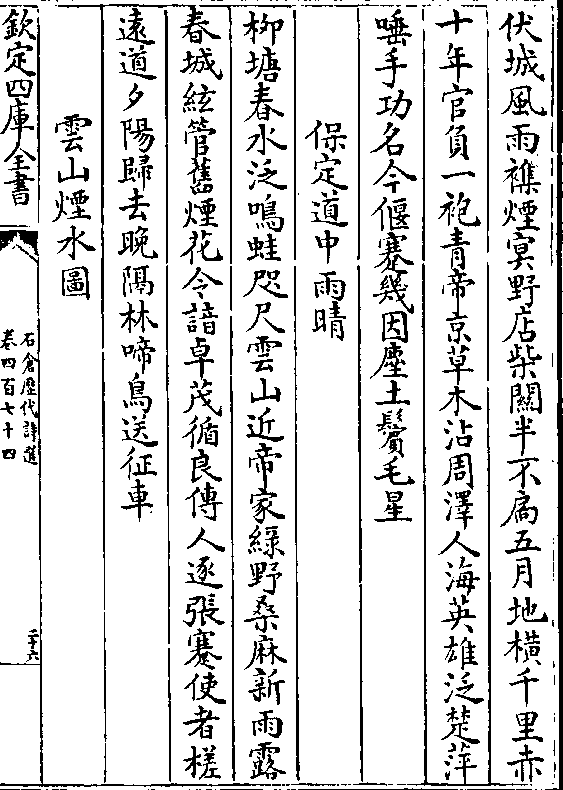 伏城風雨襍煙㝠野店柴關半不扄五月地橫千里赤
十年官負一袍青帝京草木沾周澤人海英雄泛楚萍
唾手功名今偃蹇幾因塵土鬢毛星
保定道中雨晴
柳塘春水泛鳴蛙咫尺雲山近帝家綠野桑麻新雨露
春城絃管舊煙花令諳卓茂循良傳人逐張騫使者槎
遠道夕陽歸去晚隔林啼鳥送征車
雲山煙水圖
欽定四庫全書
石倉歷代詩選
卷四百七十四
二十六